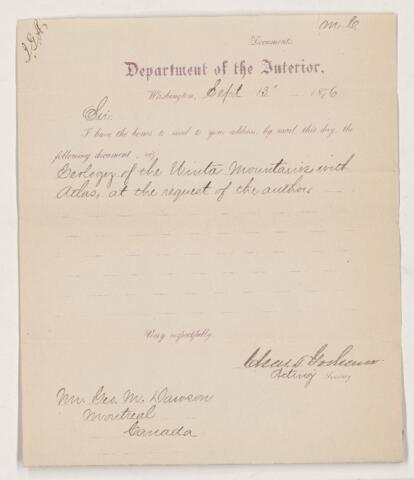 M. C.
Document.
Department of the Interior,
Washington, Sept 13 1876
Sir:
I have the honor to send to your address, by mail, this day, the
following document, viz:
Geology of the Uinta Mountains with
Atlas, at the request of the author
Very respectfully,
Acting Secretary
Mr. Geo. M. Dawson
Montreal
Canada